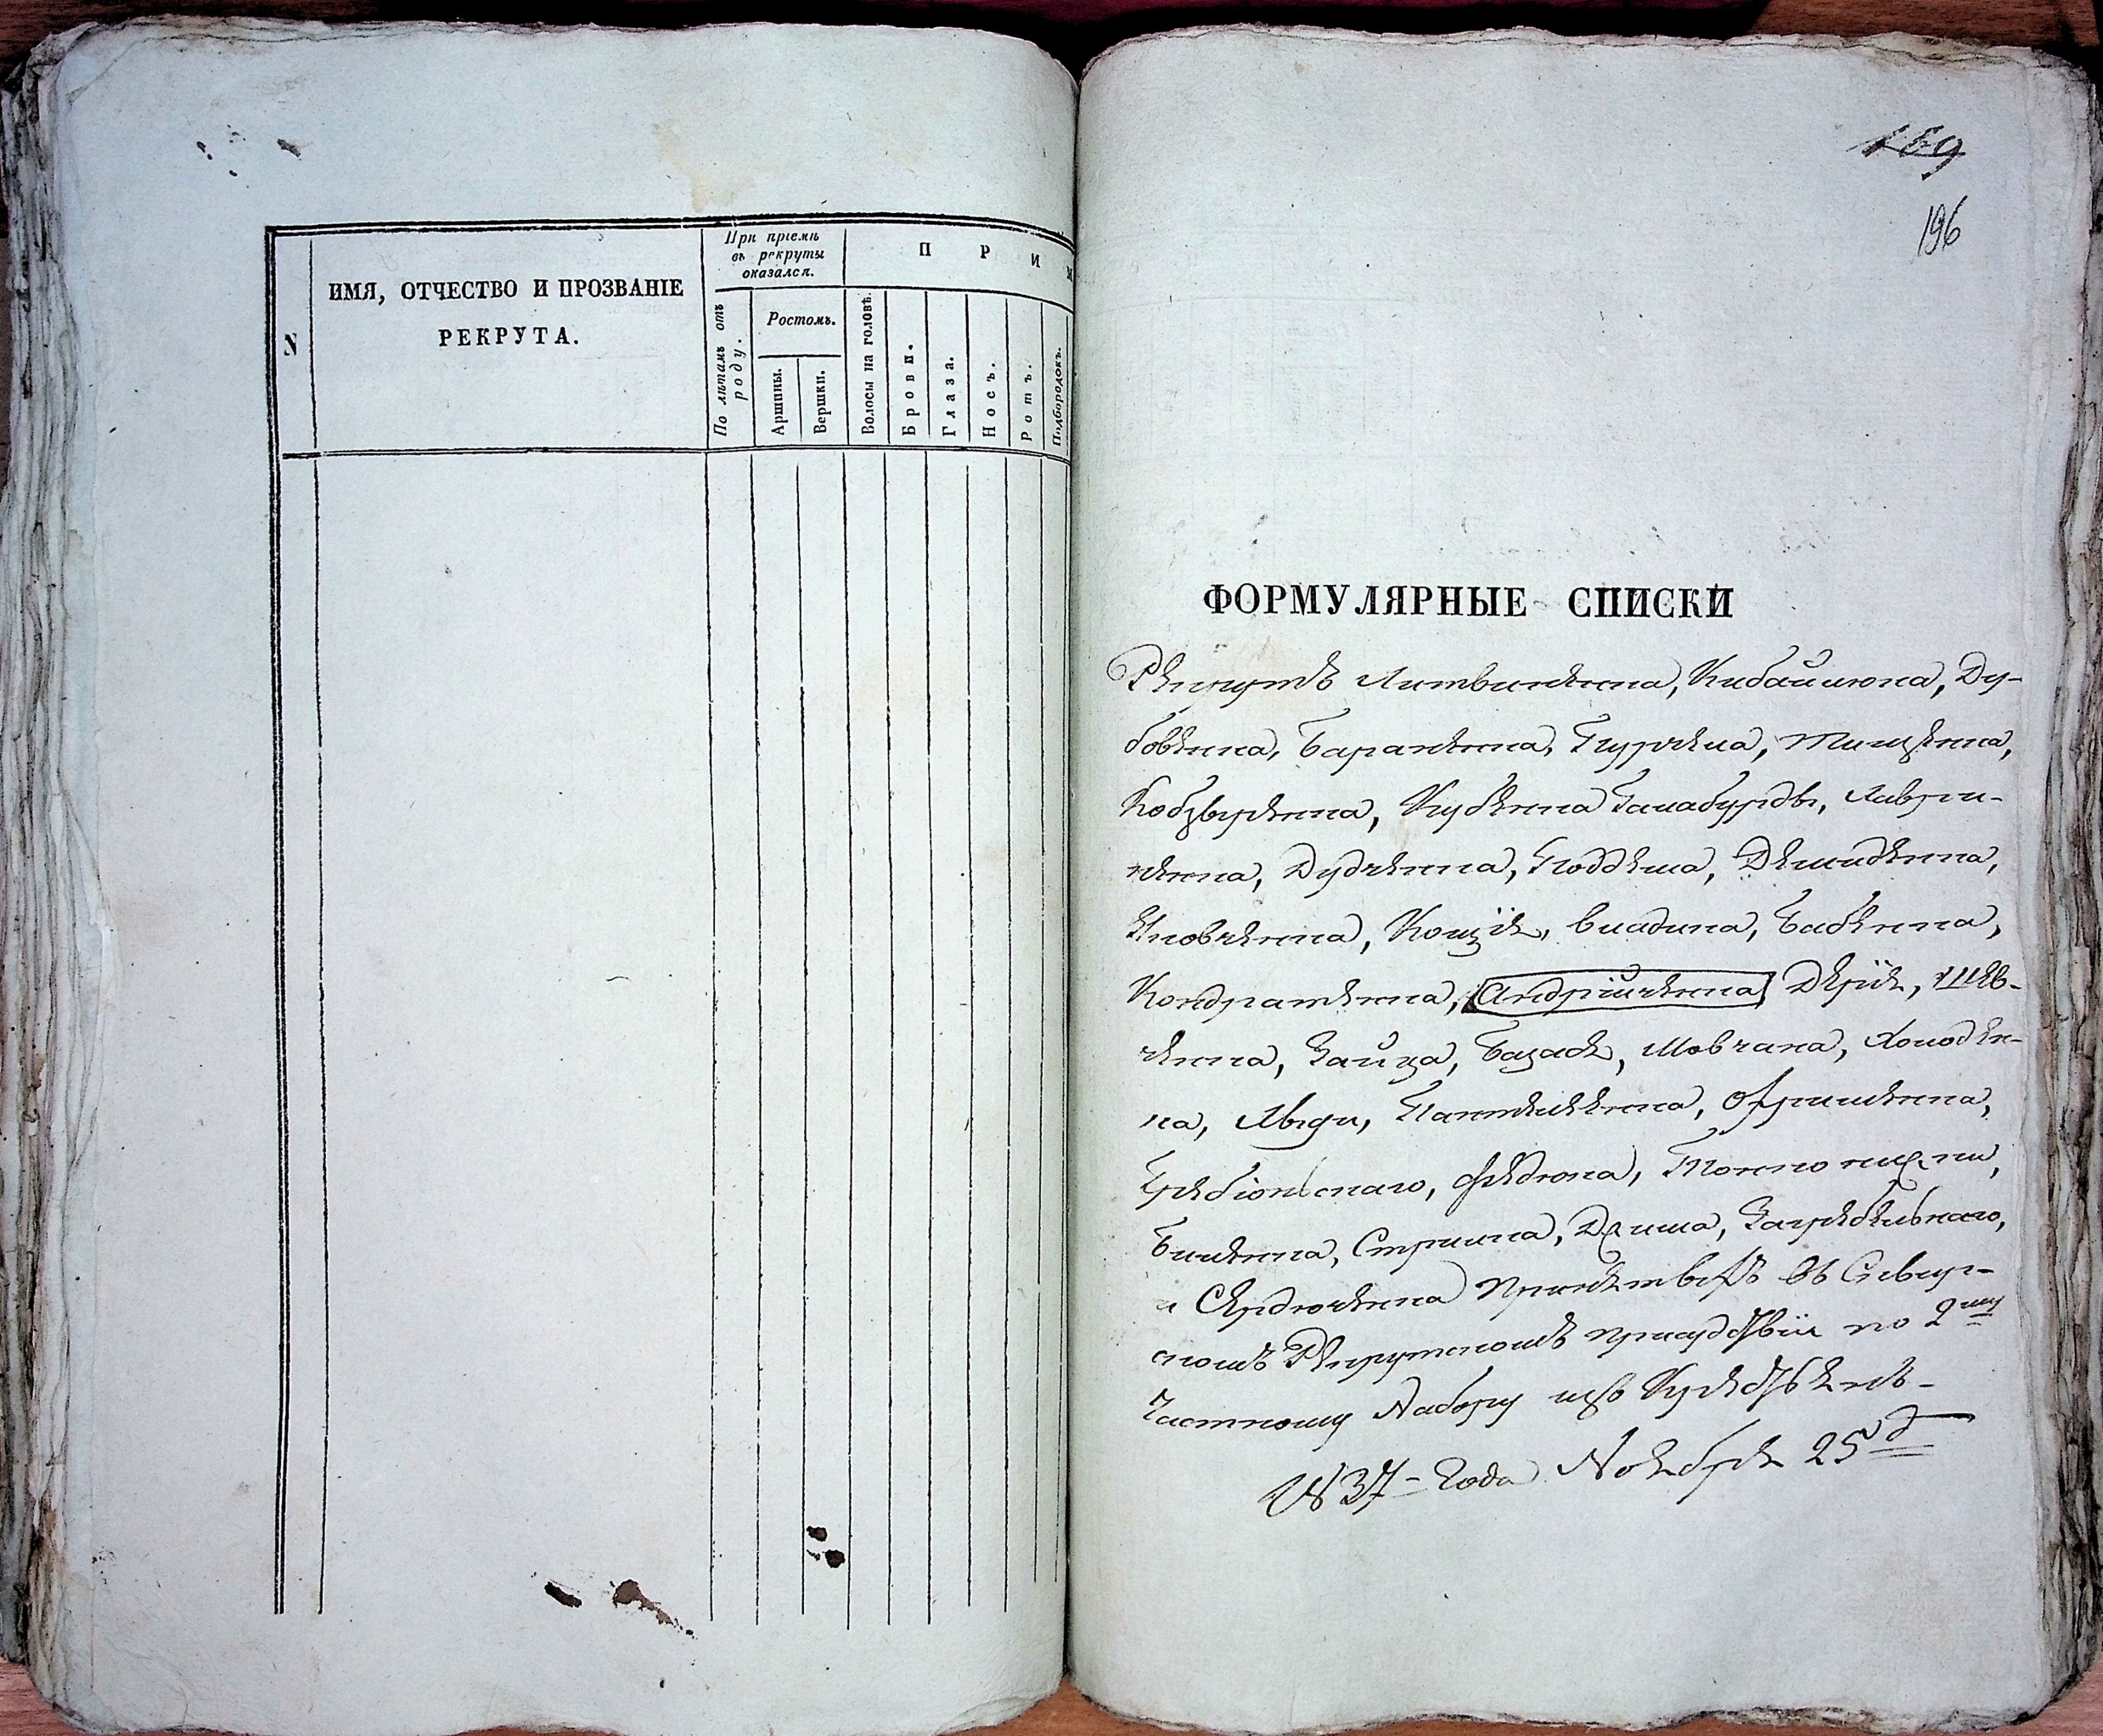 N
ИМЯ, ОТЧЕСТВО И ПРОЗВАНІЕ
РЕКРУТА.
При пріемѣ
въ рекруты
оказался.
По лѣтамъ отъ
роду.
Ростомъ.
Аршины.
Вершки.
П Р И М
Волосы на головѣ.
Брови.
Глаза.
Носъ.
Ротъ.
Подбородокъ.
169
196
ФОРМУЛЯРНЫЕ СПИСКИ
Рекрутъ Литвиненка, Кибайлюка, Ду-
бовенка, Бараненка, Тищенка,
Кубенка Галабурды, Лаври-
ненка, Дудченка, Демиденка,
Яковченка, Кощія, Владика, Бабенка,
Кондратенка, Андрійченка Дерія, Шев-
ченка, Зайца, Мовчана, Холоден-
ка, Пантелеенка, Офришенка,
Гребіоньскаго, Федюка,
Билченка, Стрижка, Загребельнаго,
и Сердюченка Принятыхъ въ Сквир-
скомъ Рекрутскомъ присудствіи по 2му
Частному Набору изъ
1837 = Года Ноября 25 д